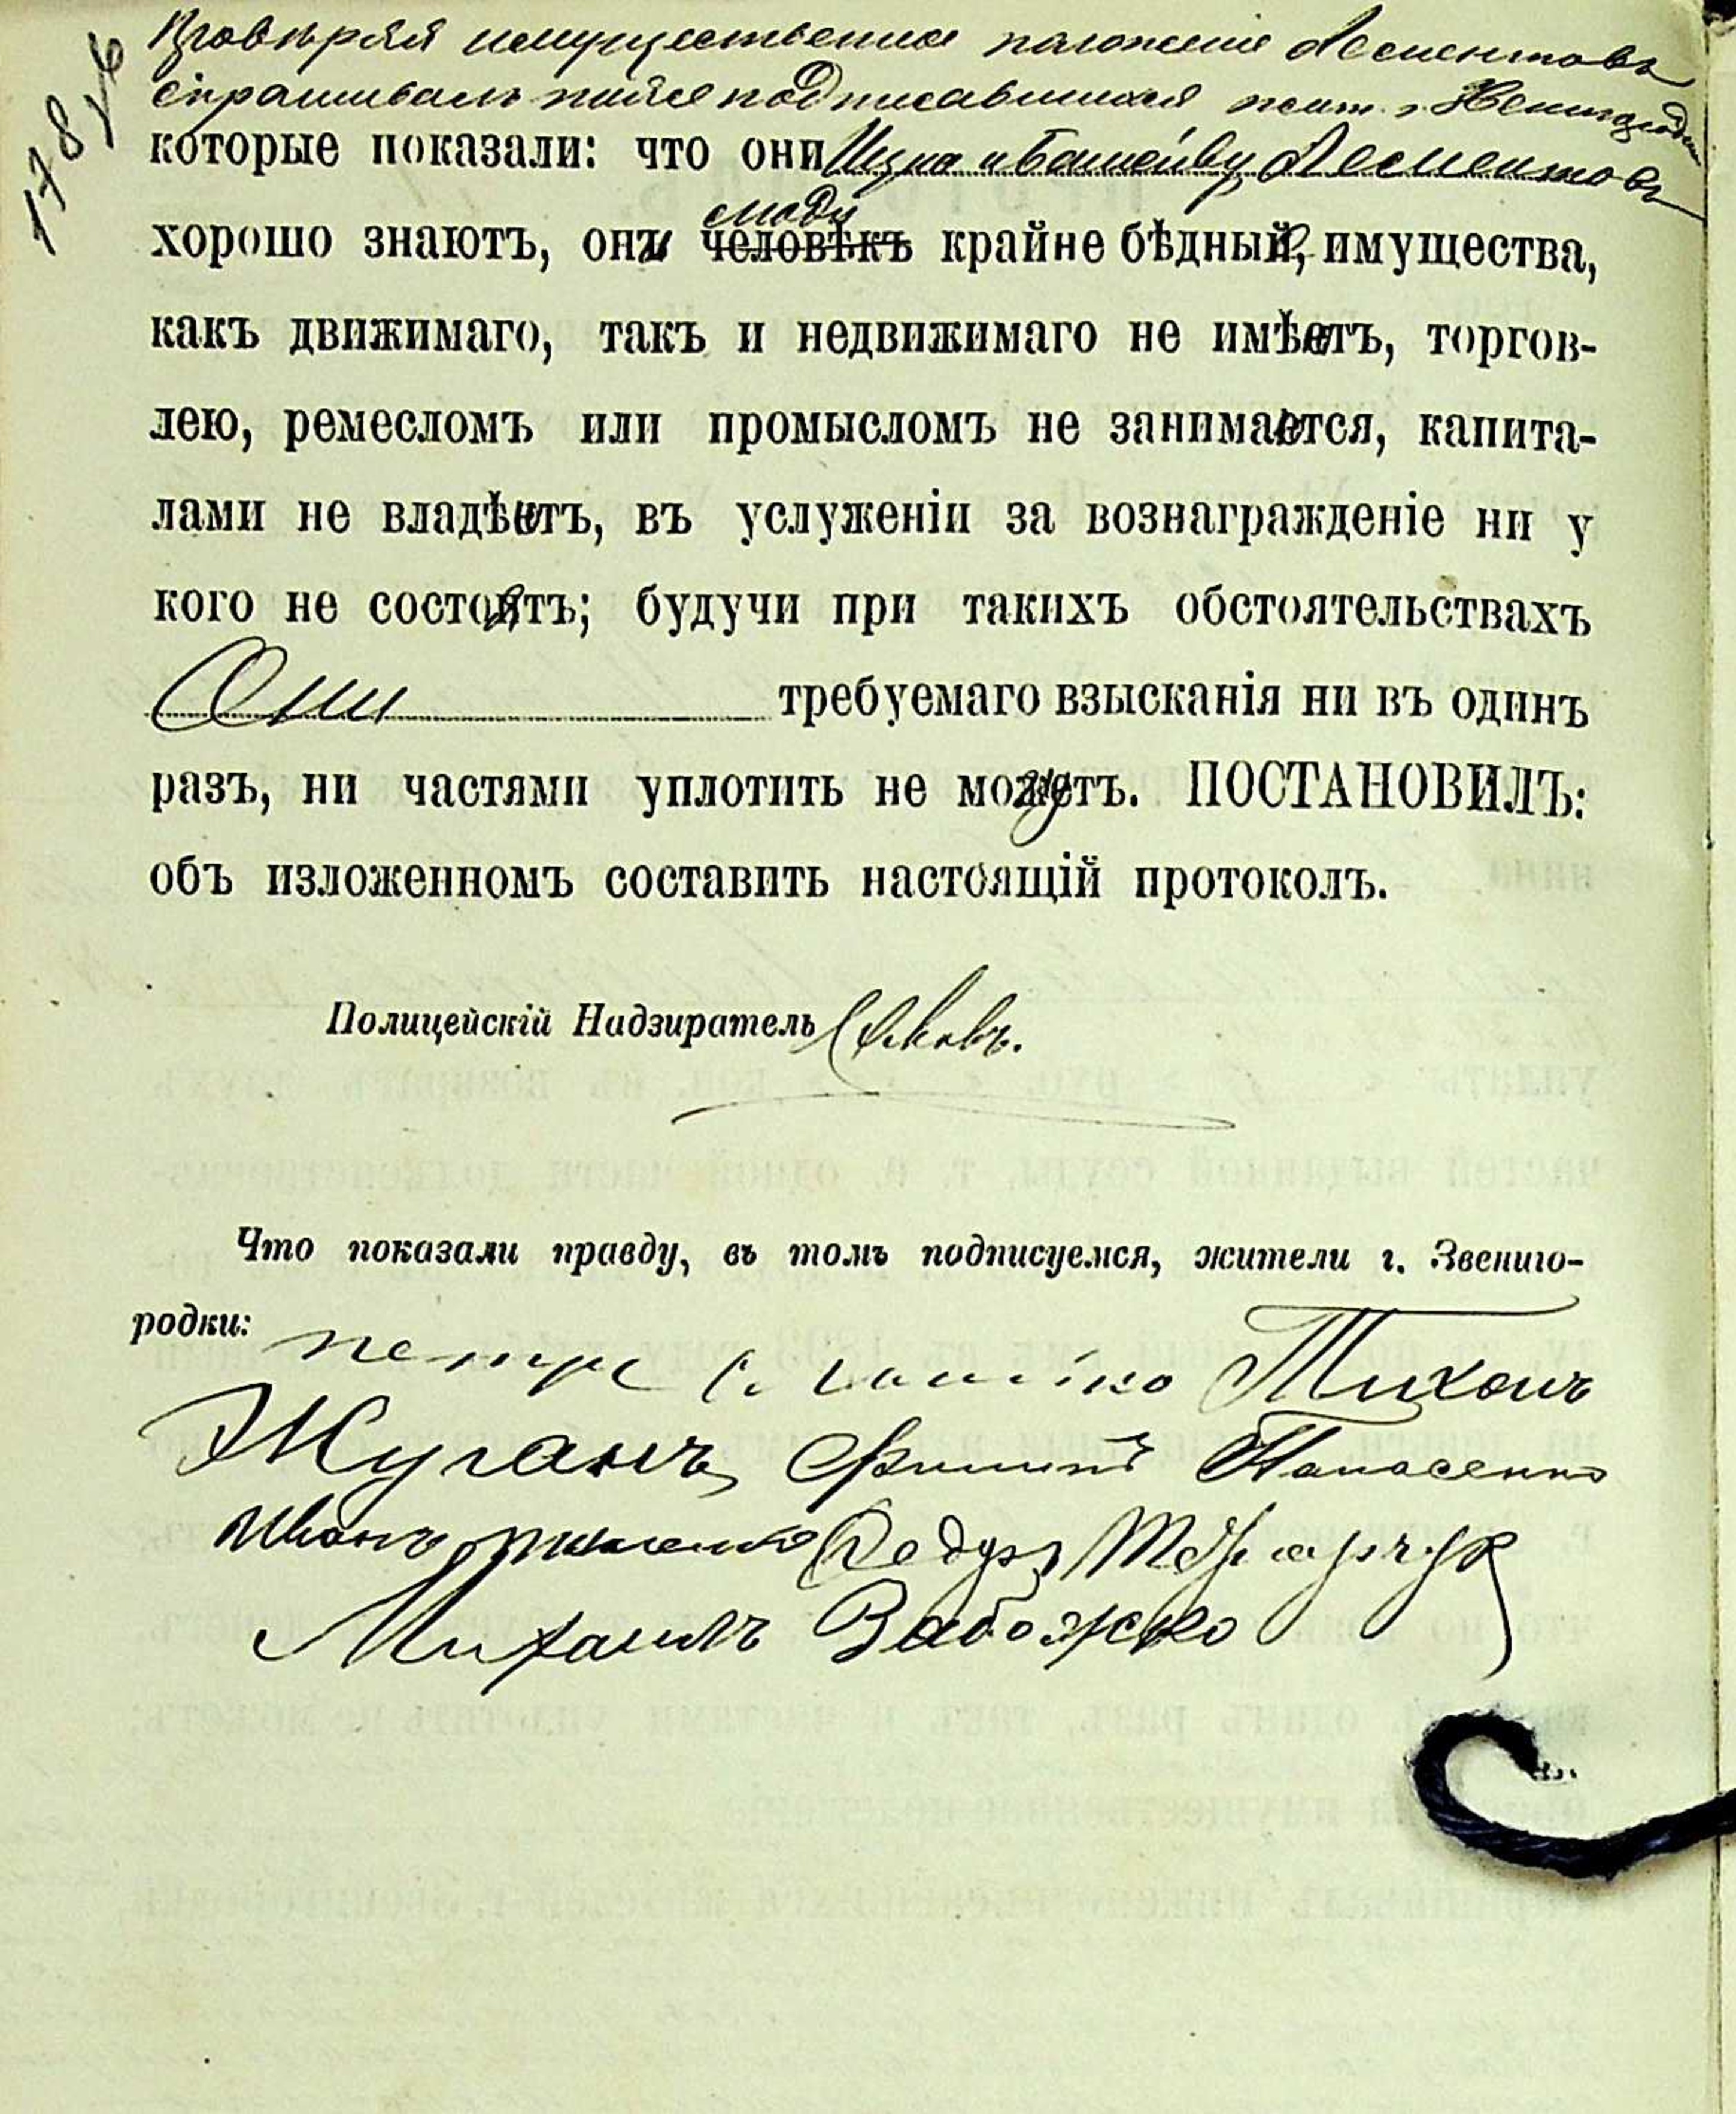 178 об
Провѣряя имущественное положеніе Лементовъ
спрашивалъ нижеподписавшихся жит. г. Звенигородки
которые показали: что они Ицка и Башейву Лементовъ
хорошо знаютъ, они люди крайне бѣдные, имущества,
какъ движимаго, такъ и недвижимаго не имѣютъ, торгов-
лею, ремесломъ или промысломъ не занимаются, капита-
лами не владѣютъ, въ услуженіи за вознагражденіе ни у
кого не состоятъ; будучи при такихъ обстоятельствахъ
Они требуемаго взысканія ни въ одинъ
разъ, ни частями уплотить не могутъ. ПОСТАНОВИЛЪ:
объ изложенномъ составить настоящій протоколъ.
Полицейскій Надзиратель
Что показали правду, въ томъ подписуемся, жители г. Звениго-
родки: петра Тихонъ
Жуганъ Филиппъ Панасенко
Иванъ Федоръ
Михаилъ Забожко